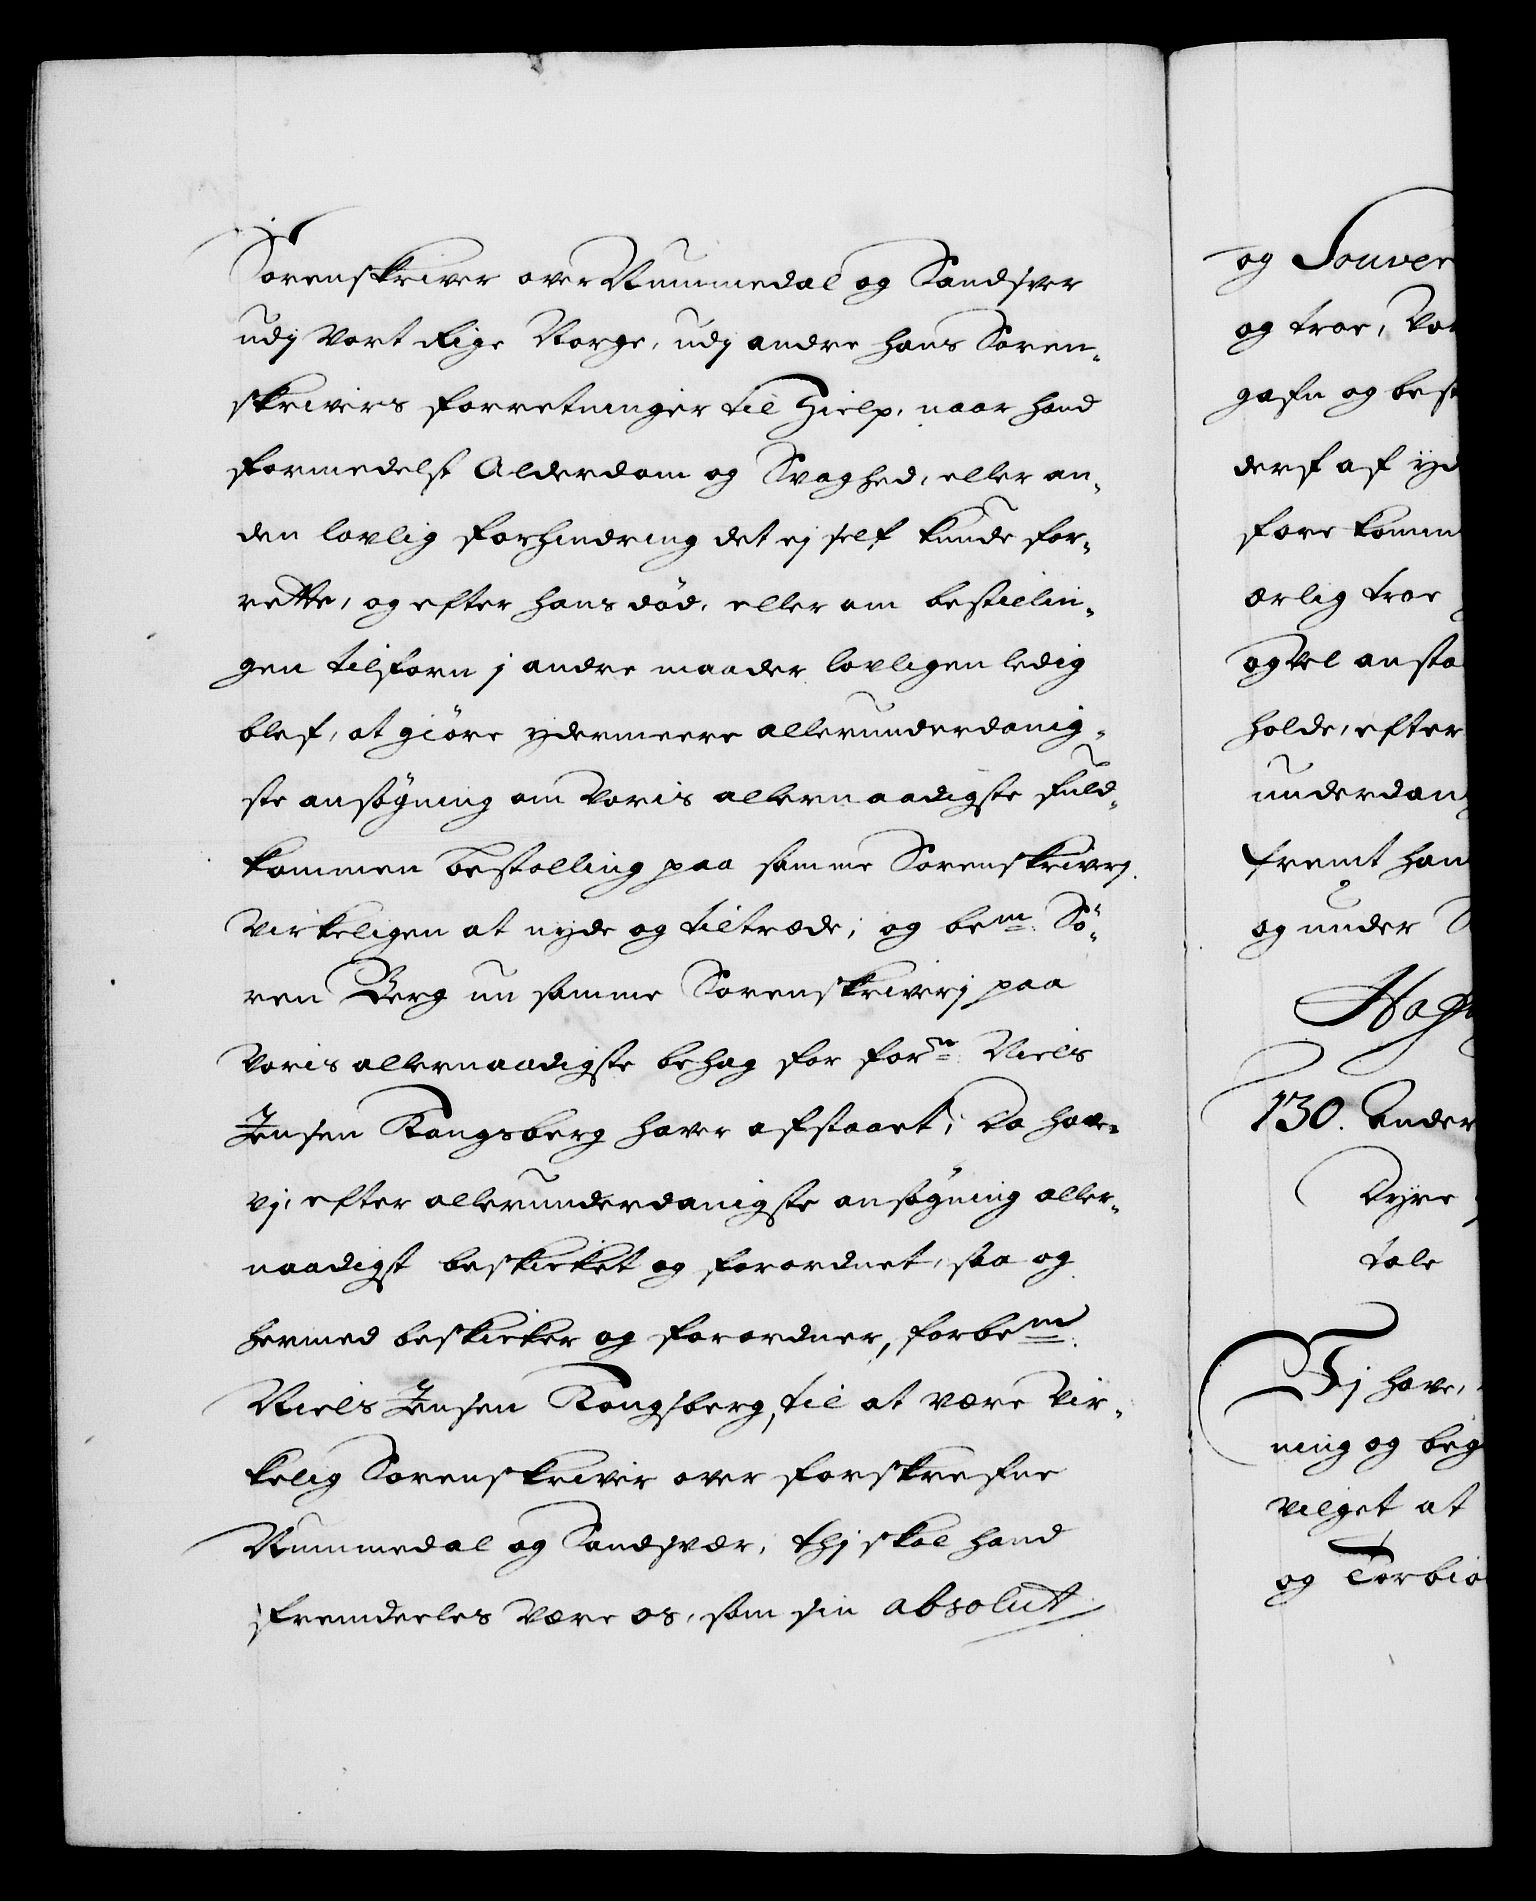 Sorenskriver over Nummedal og Sandsver
udj Vort Rige Norge, udj andre hans Soren-
skrivers forretninger til Hielp, naar hand
formedelst Alderdom og Svaghed, eller an-
den lovlig forhindring det ej self kunde for-
rette, og efter hans død, eller om bestillin-
gen tilforn j andre maader lovligen ledig
blef, at giöre ydermeere allerunderdanig-
ste ansögning om Voris allernaadigste fuld-
kommen Bestalling paa samme Sorenskriverj
Virkeligen at nyde og tiltræde; og bem.te Sö-
ren Berg nu samme Sorenskriverj paa
Voris allernaadigste behag for for.ne Niels
Jensen Kongsberg haver afstaaet; Da have
vj, efter allerunderdanigste ansögning aller-
naadigst beskicket og forordnet, saa og
hermed beskicker og forordner, forbem.te
Niels Jensen Kongsberg, til at være Vir-
kelig Sorenskriver over forskrefne
Nummedal og Sandsvær, thj skal hand
fremdeeles være os, som sin absolut
og Souver
og troe, Vor
gafn og best
derf af yd
fore komm
ærlig troe
og Vel ansta
holde, efter
underdan
fremt han
og under
130. Ander
Dyre
tale
Vj have,
ning og beg
vilget at
og Torbiö